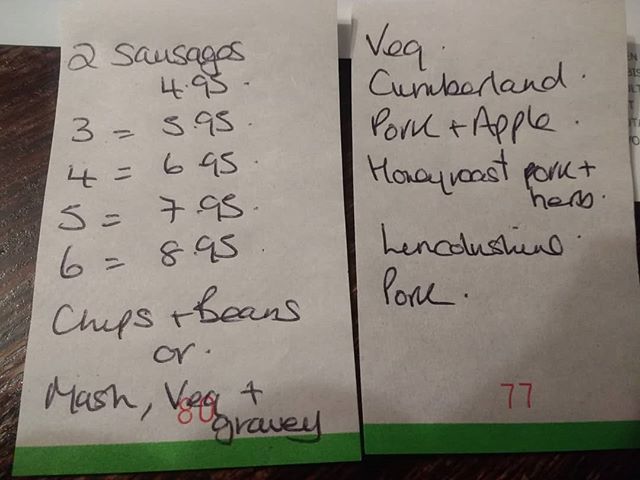 2 Sausages
4.95.
3 = 5.95.
4 = 6.95.
5 = 7.95.
6 = 8.95.
Chips + Beans
or.
Mash, Veg +
gravey
80
Veg.
Cumberland.
Pork + Apple.
Honeyroast pork +
herb.
Lincolnshire.
Pork.
77